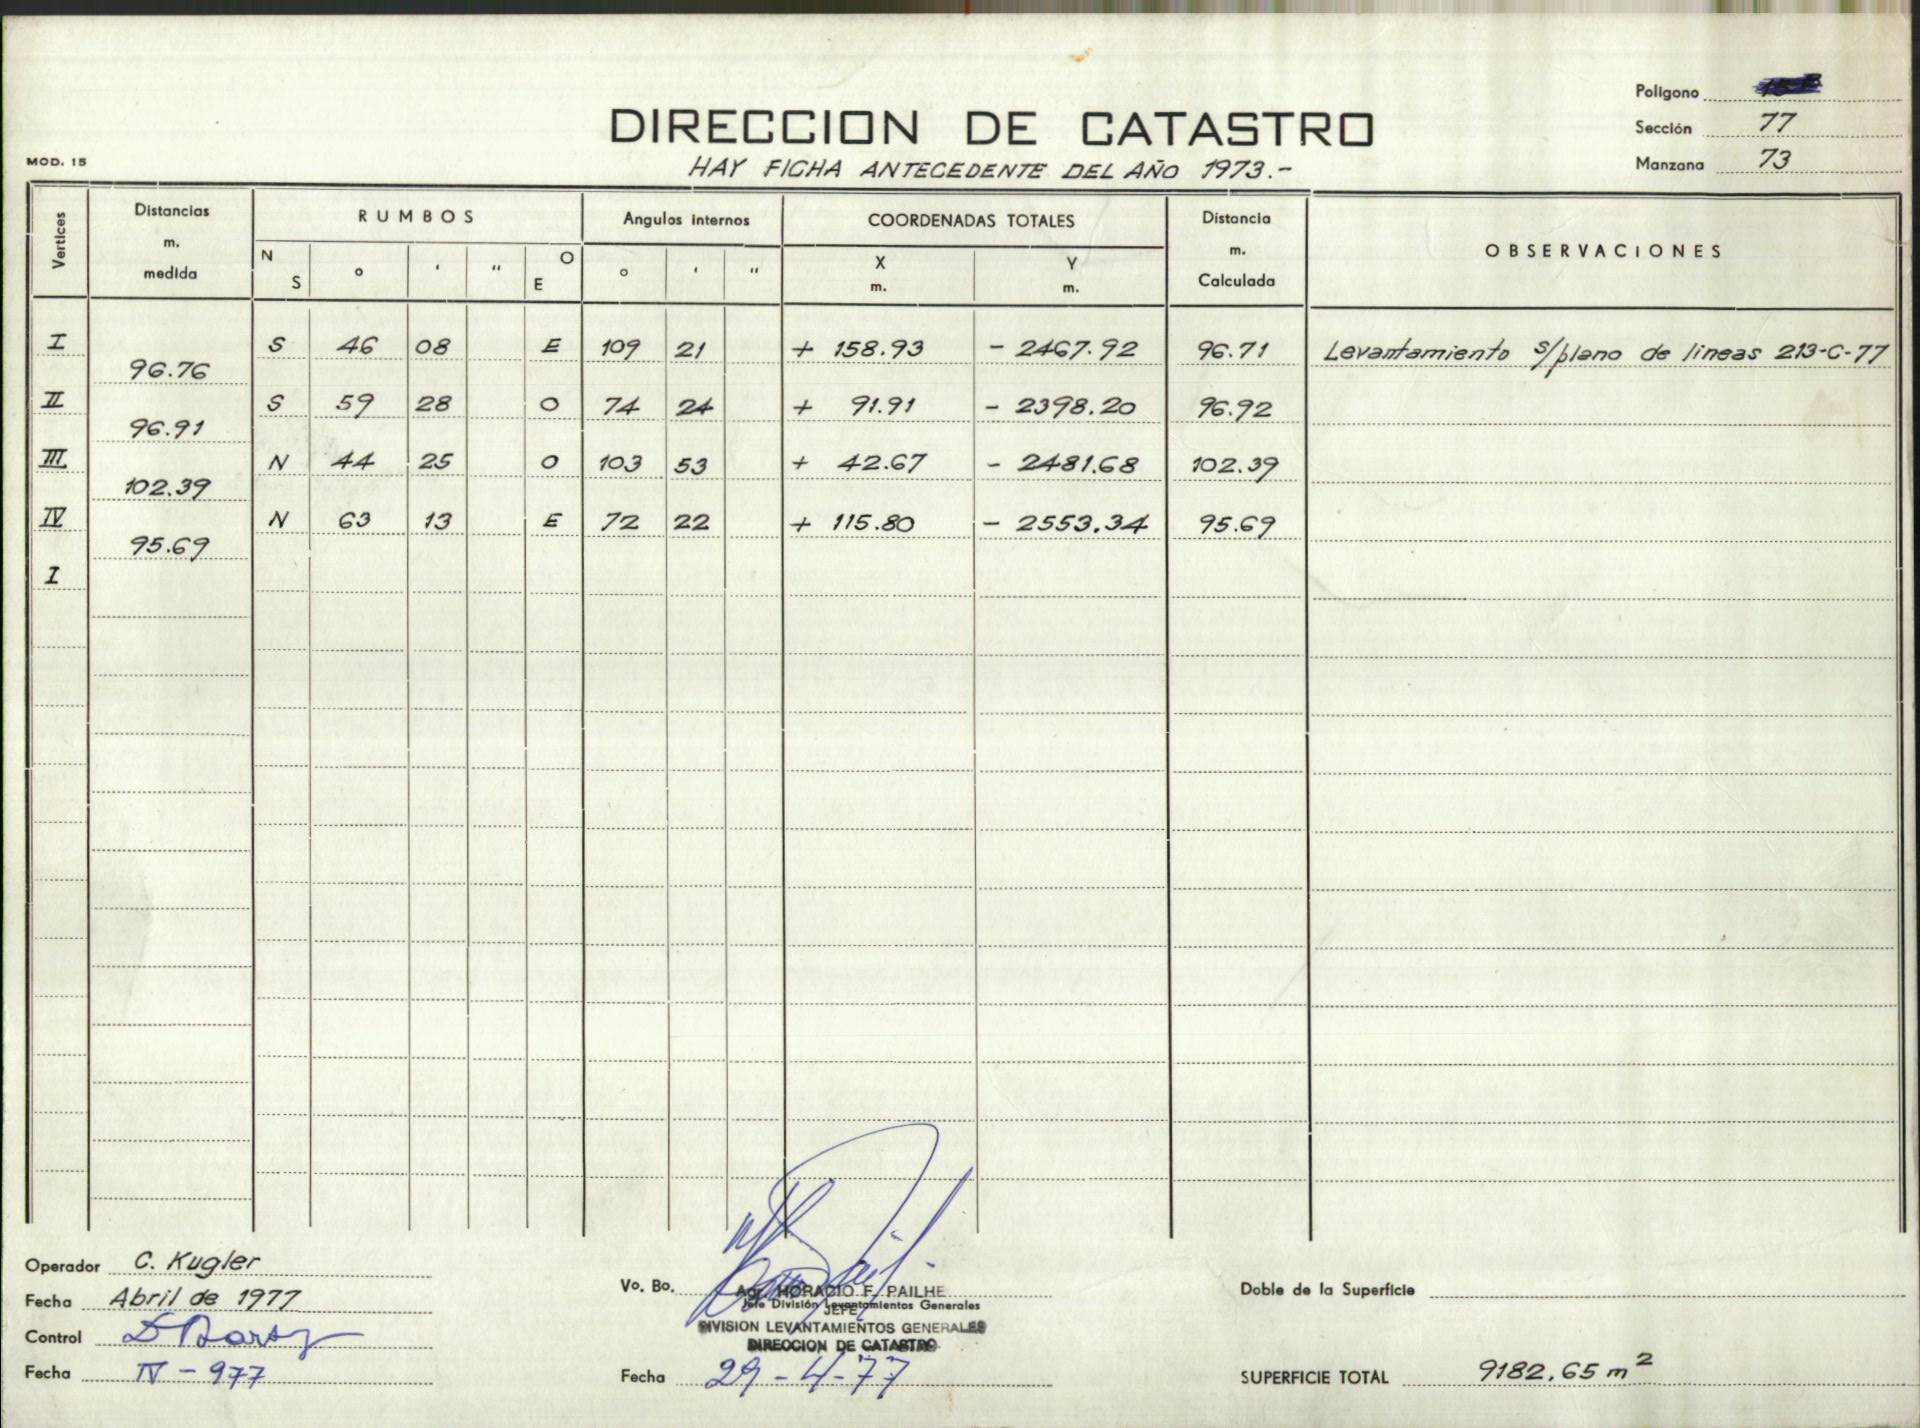 Polígono
DIRECCION DE CATASTRO
Sección 77
HAY FICHA ANTECEDENTE DEL AÑO 1973.-
MOD. 15
Manzana 73
Vertices
Distancias m. medida
RUMBOS
N S ° ' " O E
Angulos internos
° ' "
COORDENADAS TOTALES
X m. Y m.
Distancia m. Calculada
OBSERVACIONES
I S 46 08 E 109 21 + 158.93 - 2467.92 96.71 Levantamiento s/plano de lineas 213-C-77
96.76
II S 59 28 O 74 24 + 91.91 - 2398.20 96.92
96.91
III N 44 25 O 103 53 + 42.67 - 2481.68 102.39
102.39
IV N 63 13 E 72 22 + 115.80 - 2553.34 95.69
95.69
I
Operador C. Kugler
Fecha Abril de 1977
Control
Fecha IV - 977
Vo. Bo.
Agr. HORACIO F. PAILHE
Jefe División Levantamientos Generales
JEFE
DIVISION LEVANTAMIENTOS GENERALES
DIRECCION DE CATASTRO
Fecha 29-4-77
Doble de la Superficie
SUPERFICIE TOTAL 9182.65 m²